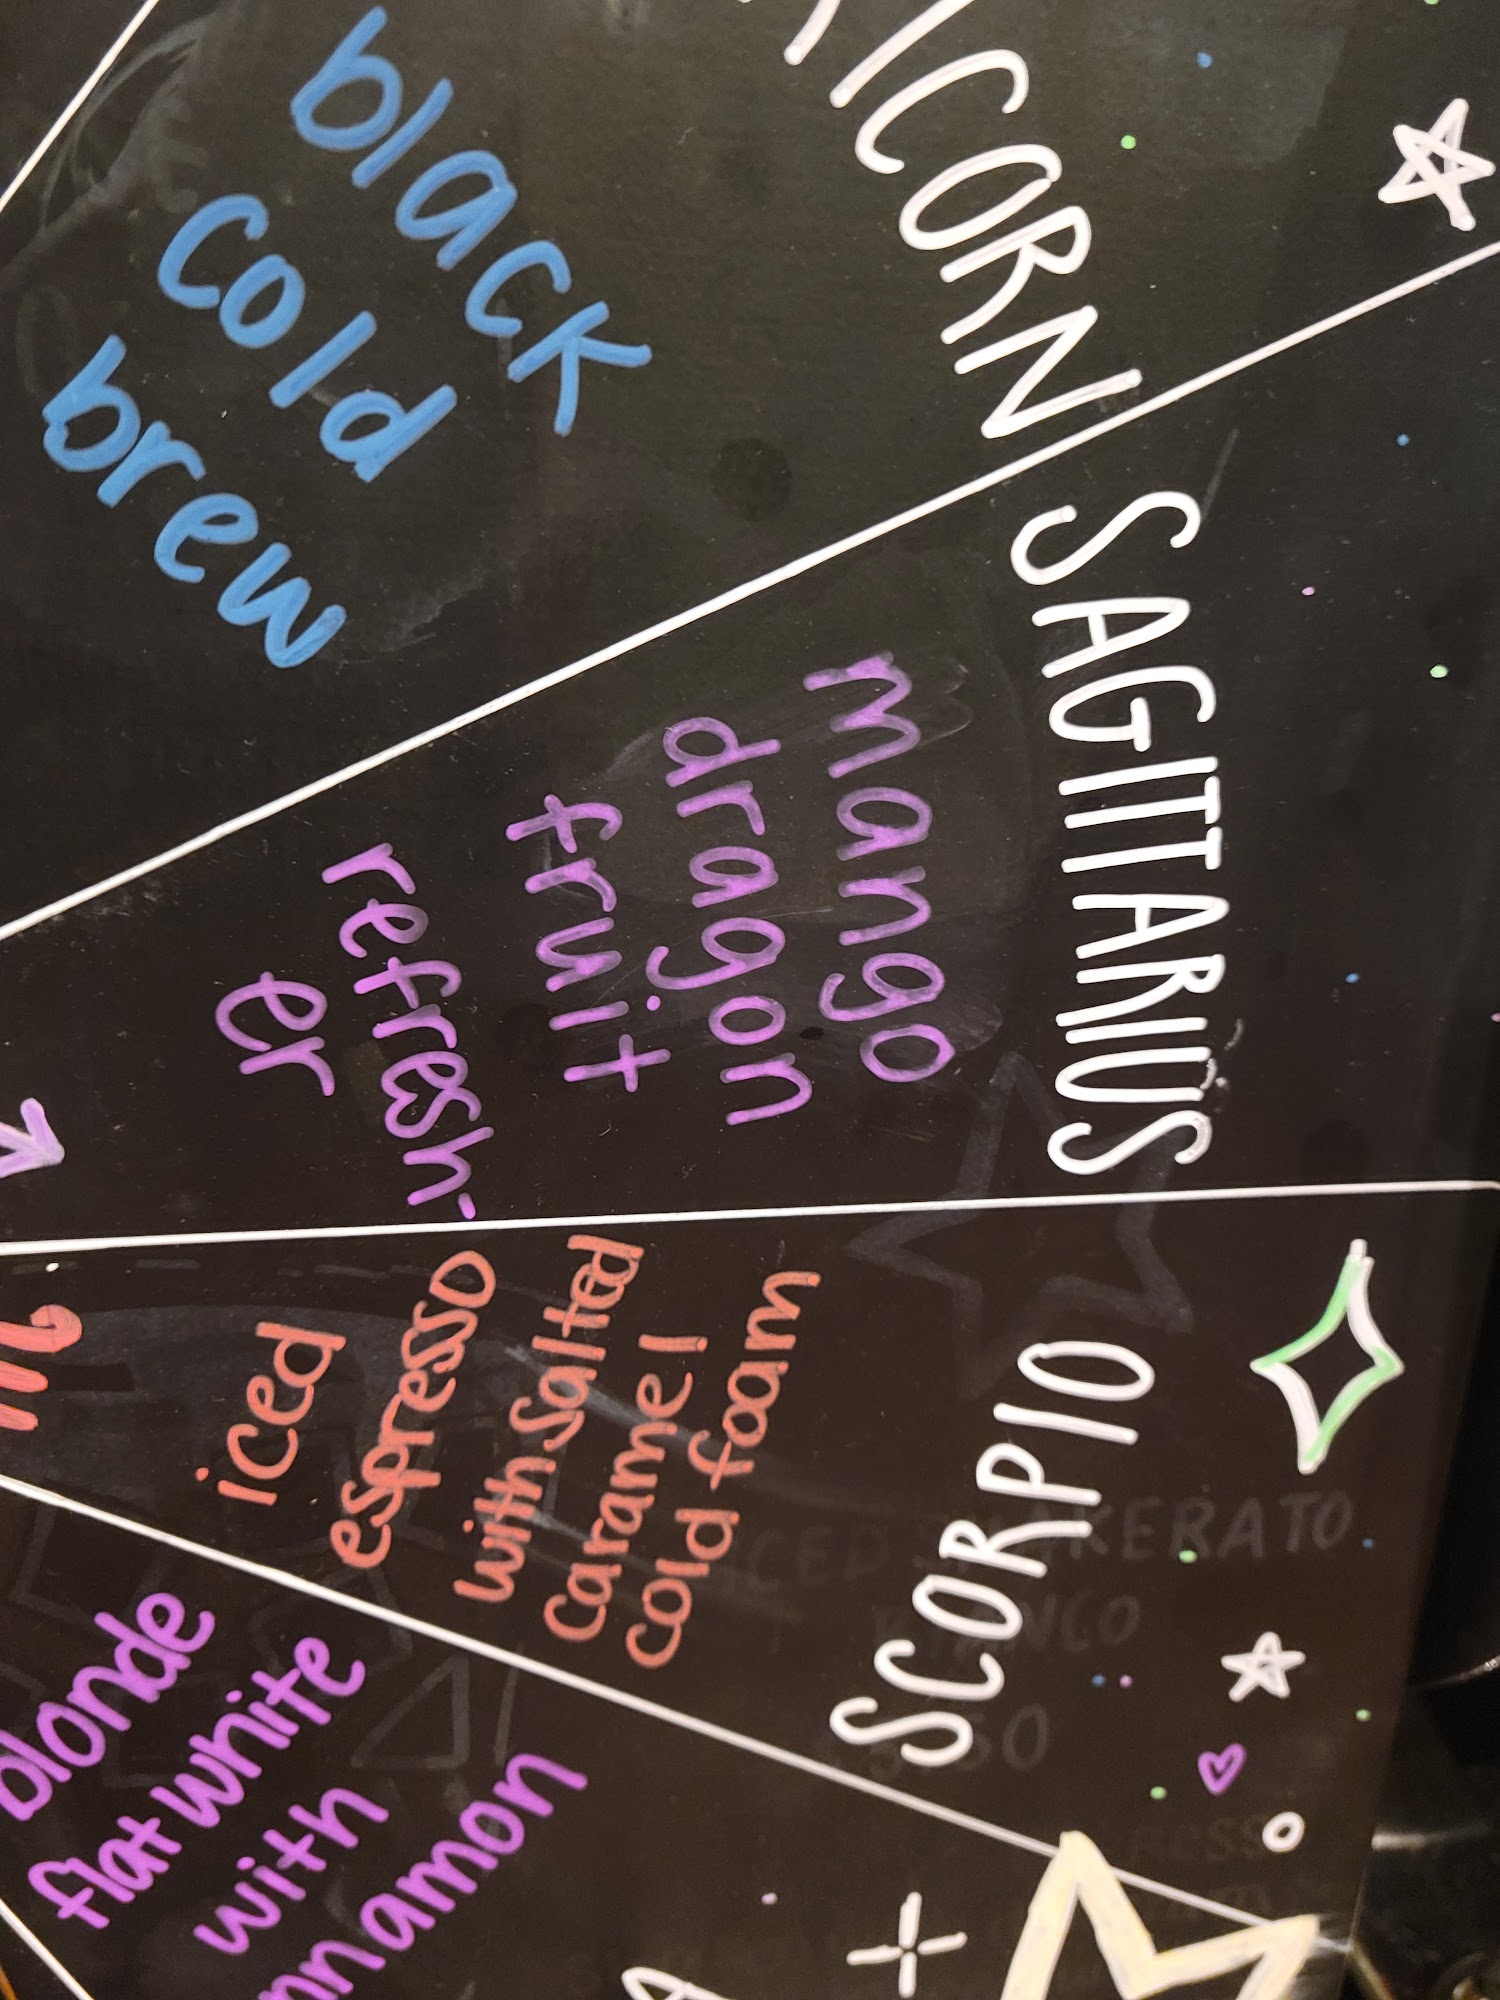 ICORN
black
cold
brew
SAGITTARIUS
mango
dragon
fruit
refresh-
er
SCORPIO
iced
espresso
with salted
caramel
cold foam
blonde
flat white
with
nnamon